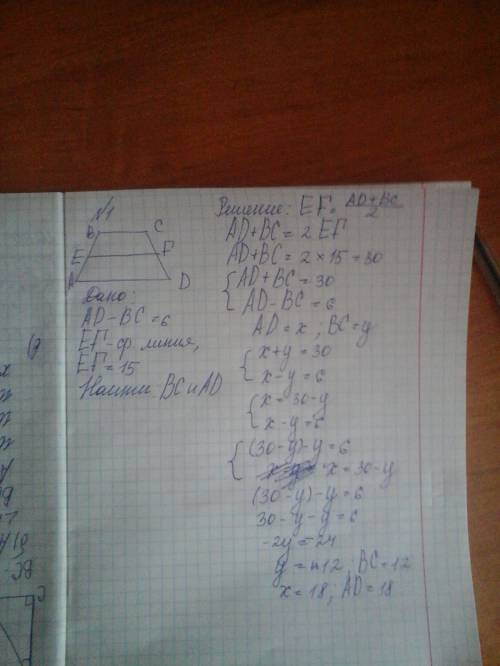 №1
B C
E F
A D
Дано:
AD-BC=6
EF-ср. линия,
EF=15
Найти BC и AD
Решение: EF = AD+BC/2
AD+BC = 2 EF
AD+BC = 2 × 15 = 30
{ AD+BC = 30
AD-BC = 6
AD = x ; BC = y
{ x+y = 30
x-y = 6
{ x = 30-y
x-y = 6
{ (30-y)-y = 6
x = 30-y
(30-y)-y = 6
30-y-y = 6
-2y = 24
y = 12 ; BC = 12
x = 18 ; AD = 18
C